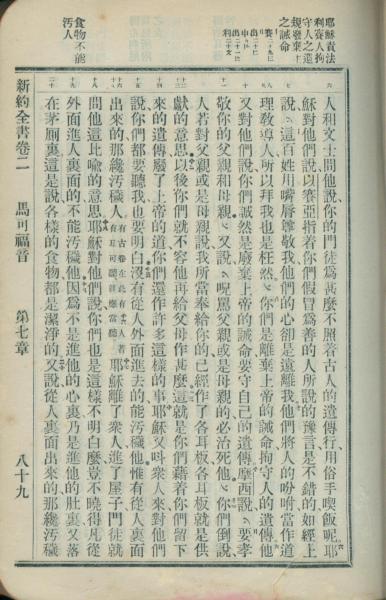 耶穌責法
利賽人拘
守人之遺
規發棄主
之誡命
食物不能
污人
人和文士問他說你的門徒爲甚麼不照着古人的遺傳行用俗手喫飯呢耶
穌對他們說以賽亞指着你們假冒爲善的人所說的豫言是不錯的如經上
說這百姓用嘴唇尊敬我他們的心卻是遠離我他們將人的吩咐當作道
理敎導人所以拜我也是枉然你們是離棄上帝的誡命拘守人的遺傳他
又對他們說你們誠然是廢棄上帝的誡命要守自己的遺傳摩西說要孝
敬你的父親和母親又說呪罵父親或是母親的必治死他你們倒說
人若對父親或是母親說我所當奉給你的已經作了各耳板各耳板就是供
獻的意思以後你們就不容他再給父母作甚麼這就是你們藉着你們留下
來的遺傳廢了上帝的道你們還作許多這樣的事耶穌又呌衆人來對他們
說你們都要聽我也要明白沒有從人外面進去的能污穢他惟有從人裏面
出來的那纔污穢人有古卷在此有有耳可聽就應當聽人者耶穌離了衆人進了屋子門徒就
問他這比喩的意思耶穌對他們說你們也是這樣不明白麼豈不曉得凡從
外面進人裏面的不能污穢他因爲不是進他的心裏乃是進他的肚裏又落
在茅厠裏這是說各樣的食物都是潔淨的又說從人裏面出來的那纔污穢
新約全書卷二 馬可福音 第七章 八十九